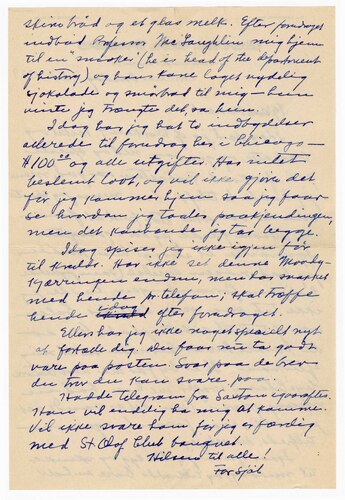 skinbröd og et glas melk. Efter foredraget
indbød Professor McLaughlin mig hjem
til en "maske" (he is head of the department
of history) og hans kone laget nydelig
sjokolade og smörbröd til mig — hun
viste jeg trængte det, sa hun.
I dag har jeg hat to indbydelser
allerede til foredrag her i Chicago —
$100.00 og alle utgifter. Har intet
bestemt loot, og vil ikke gjöre det
för jeg kommer hjem saa jeg faar
se hvordan jeg taaler paakjendingen,
men det kan vande jeg tar begge.
I dag spiser jeg ikke igjen før
til kvelds. Har ikke set denne Moody-
kjærringen endnu, men har snakket
med hende pr. telefon; skal træffe
hende idag efter foredraget.
Ellers har jeg ikke noget specielt nyt
at fortælle dig. Du faar nu ta godt
vare paa posten. Svar paa de brev
du tror du kan svare paa.
Hadde telegram fra Saeton igaaraftes.
Ham vil endelig ha mig at komme.
Vil ikke svare ham før jeg er færdig
med St Olaf Club banquet.
Hilsen til alle!
Far Sjöl